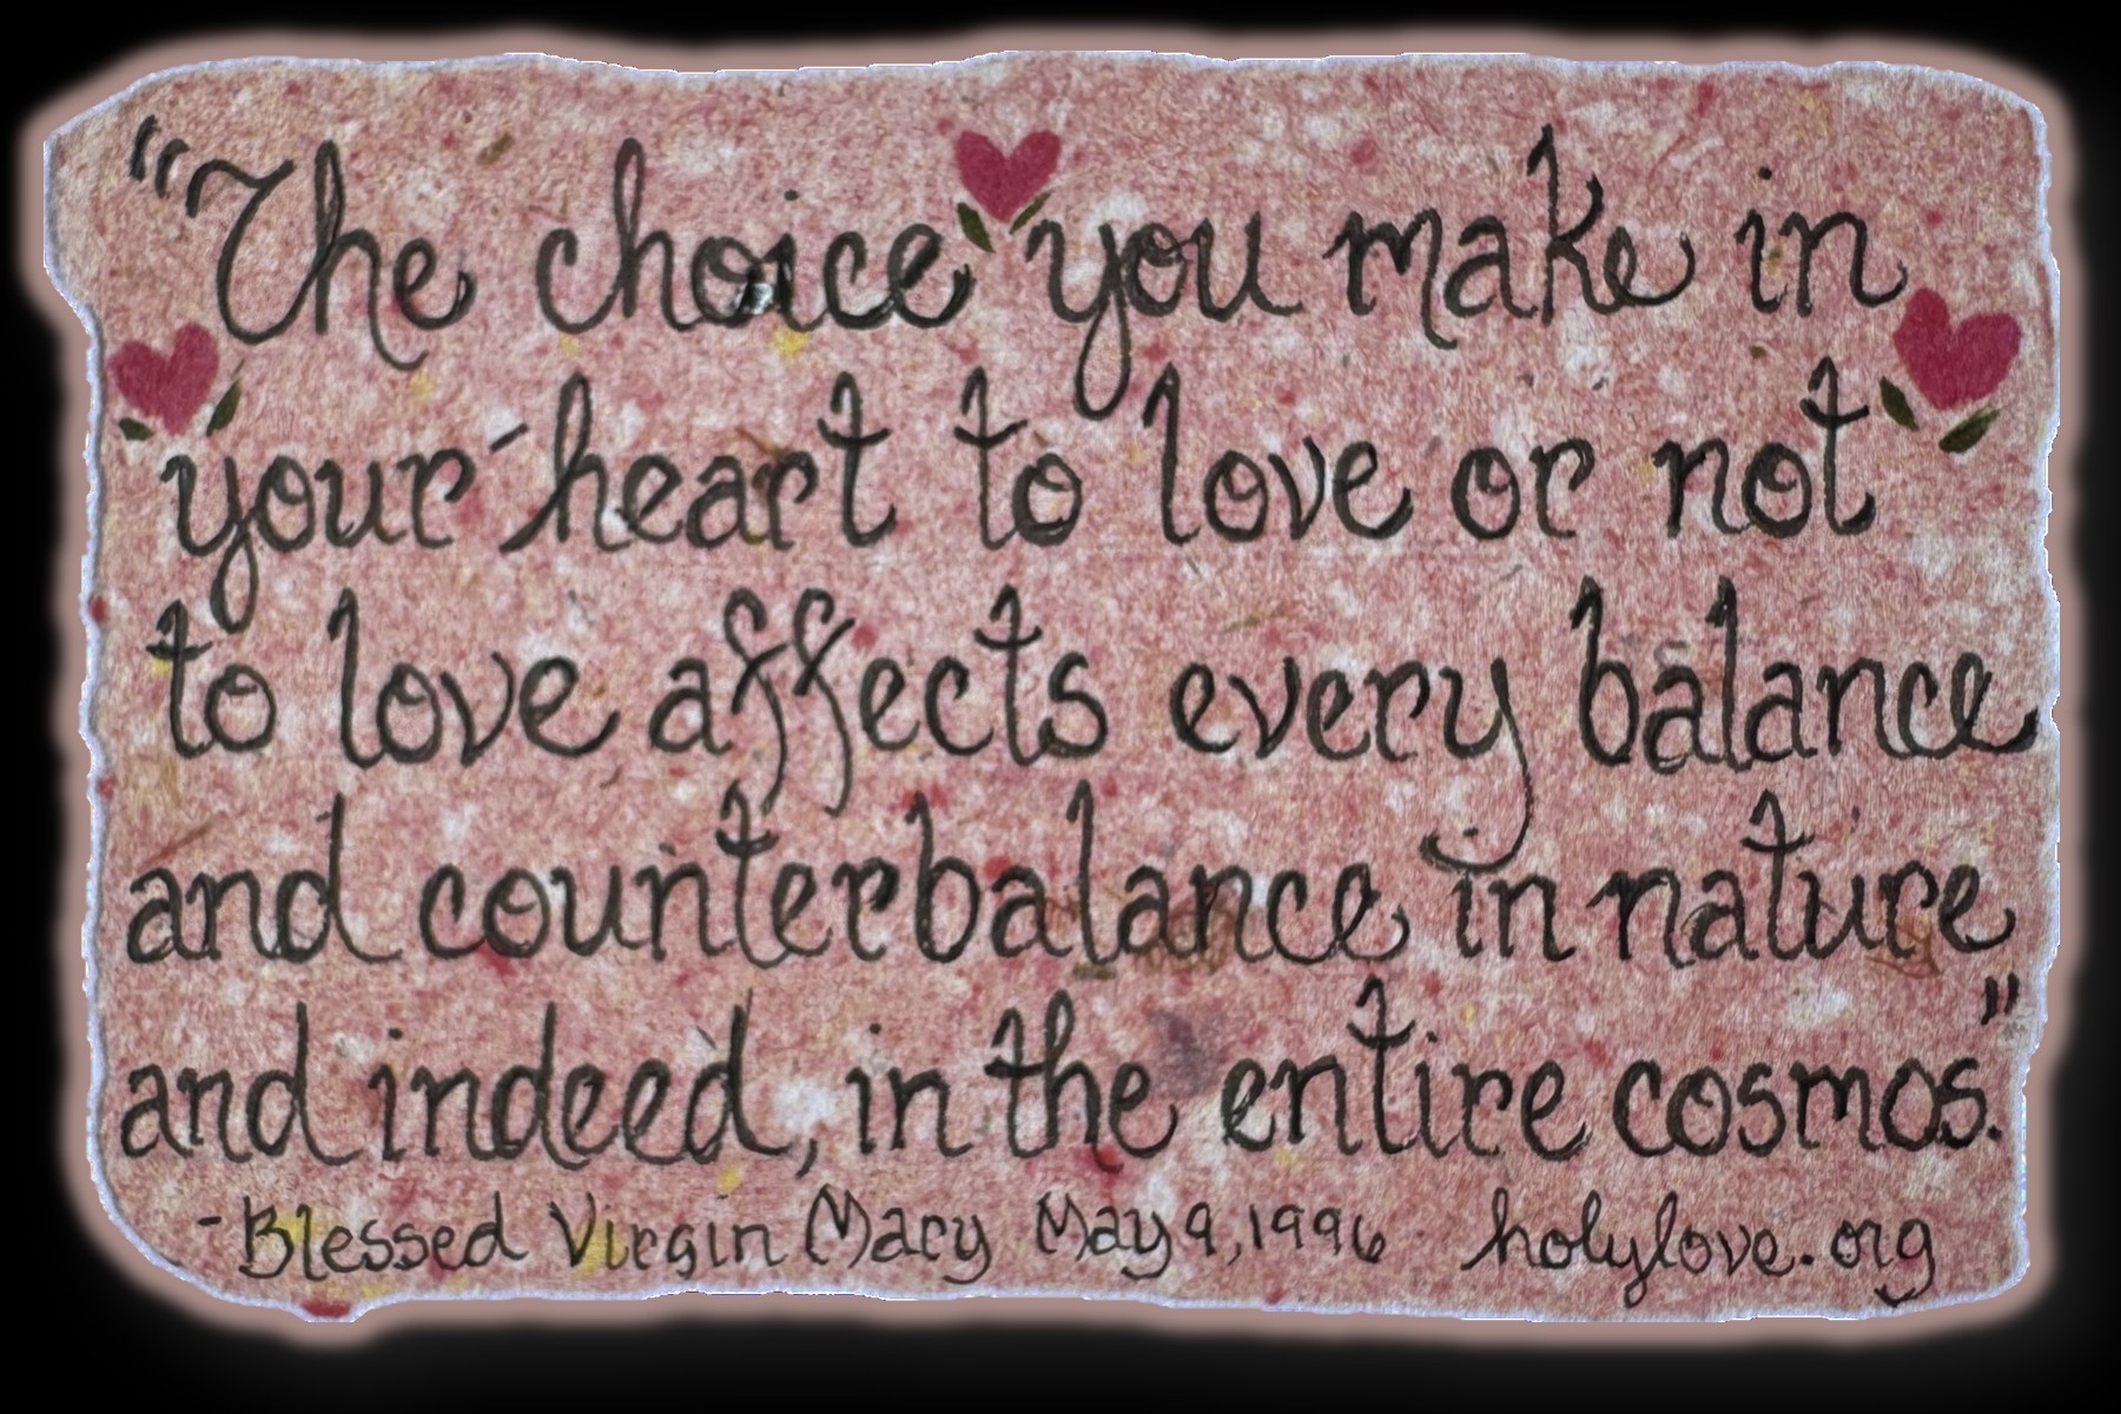 "The choice you make in
your heart to love or not
to love affects every balance
and counterbalance in nature
and indeed, in the entire cosmos."
- Blessed Virgin Mary May 9, 1996 holylove.org